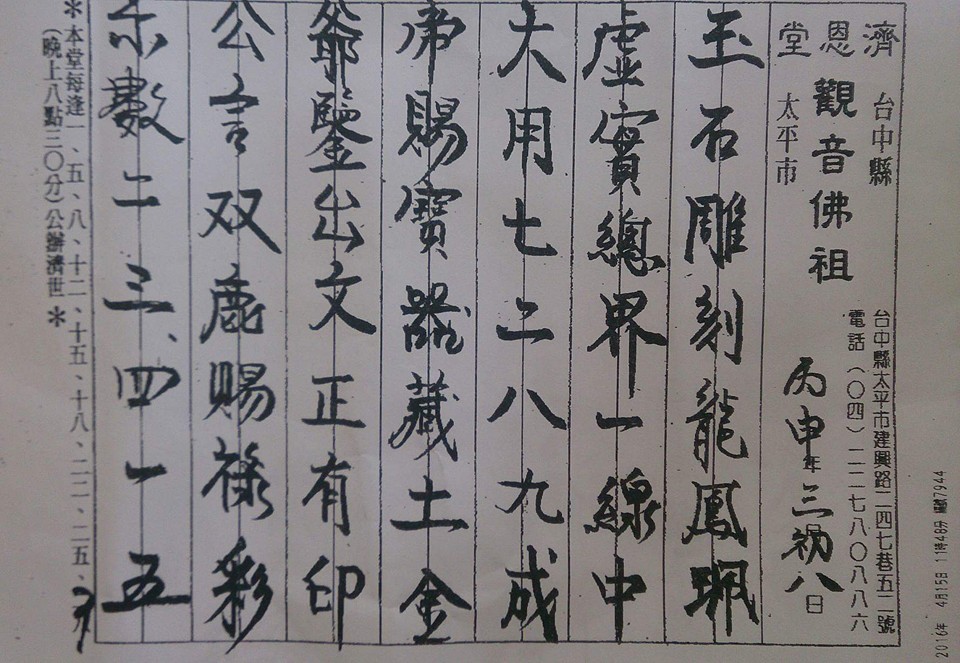 濟恩堂
台中縣
太平市
觀音佛祖
台中縣太平市建興路二四七巷五二號
電話（〇四）二二七八〇八八六
丙申年三月初八日
玉石雕刻龍鳳珮
虛實總界一線中
大用七二八九成
帝賜寶器藏土金
爺鑒出文正有印
公言双鹿賜祿彩
示數二三、四一五
＊本堂每逢一、五、八、十二、十五、十八、二二、二五、
（晚上八點三〇分）公辦濟世＊
2016年 4月15日 11時48分